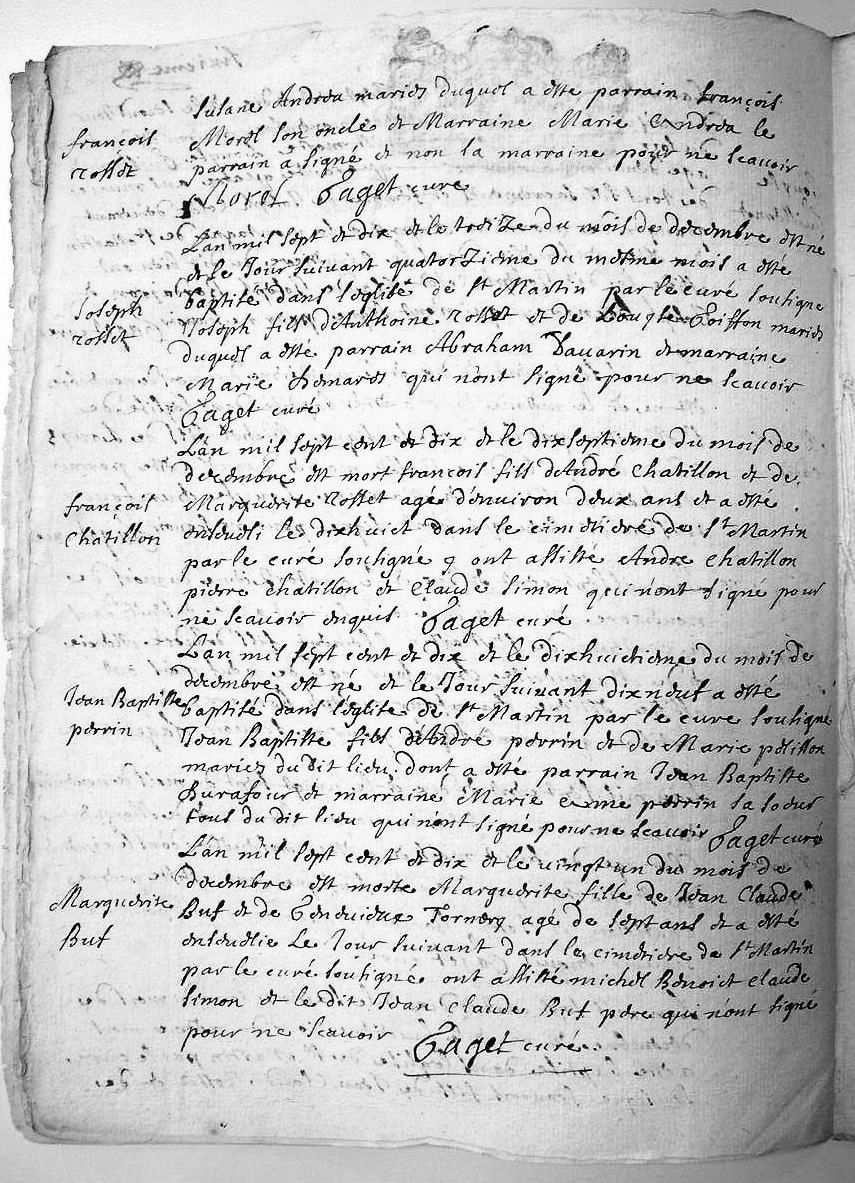 susane Andrea mariés duquel a esté parrain françois
françois
rosset
Morel son oncle et Marraine Marie Andrea le
parrain a signé et non la marraine pour ne scavoir
Morel Paget curé
L'an mil sept et dix et le treize du mois de decembre est né
et le Jour suivant quatorzieme du mesme mois a esté
baptisé dans l'eglise de st Martin par le curé soussigne
Joseph
rosset
Joseph fils d'Anthoine rosset et de Poisson mariés
duquel a esté parrain Abraham Savarin et marraine
Marie qui n'ont signé pour ne scavoir
Paget curé
L'an mil sept cent et dix et le dixseptieme du mois de
decembre est mort françois fils d'André Chatillon et de
françois
Chatillon
Marguerite Rosset agé d'environ deux ans et a esté
enseveli le dixhuict dans le cimetiere de st Martin
par le curé soussigné y ont assisté Andre chatillon
pierre chatillon et Claude simon qui n'ont signé pour
ne scavoir enquis Paget curé
L'an mil sept cent et dix et le dixhuictieme du mois de
decembre est né et le Jour suivant dixneuf a esté
Jean Baptiste
perrin
baptisé dans l'eglise de st Martin par le curé soussigné
Jean Baptiste fils d'André perrin et de Marie pelisson
mariez du dit lieu dont a esté parrain Jean Baptiste
Durafour et marraine Marie perrin sa soeur
tous du dit lieu qui n'ont signé pour ne scavoir Paget curé
L'an mil sept cent et dix et le vingt un du mois de
decembre est morte Marguerite fille de Jean Claude
Marguerite
Buf
Buf et de Genevieve agé de sept ans et a esté
ensevelie Le Jour suivant dans le cimetiere de st Martin
par le curé soussigné ont assisté michel Benoict claude
simon et le dit Jean Claude Buf pere qui n'ont signé
pour ne scavoir Paget curé